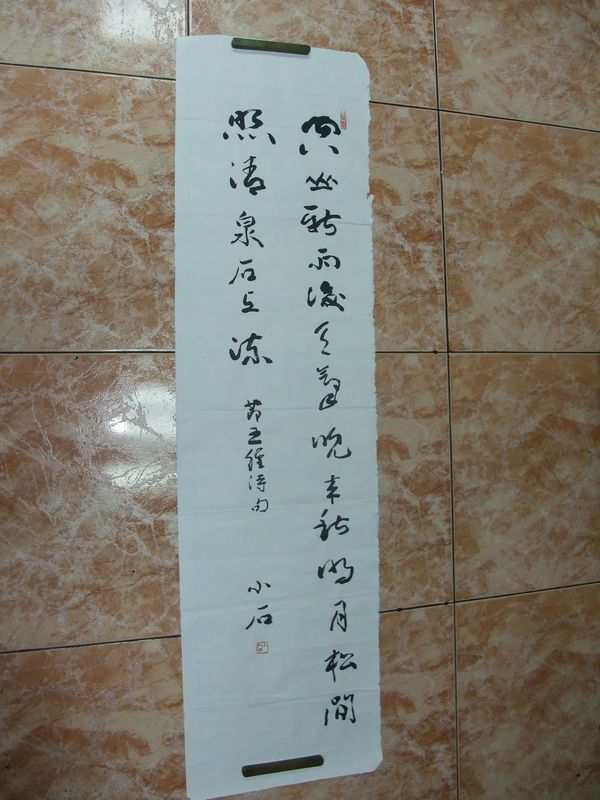 空山新雨後天氣晚来秋明月松間
照清泉石上流
節王維詩句
小石